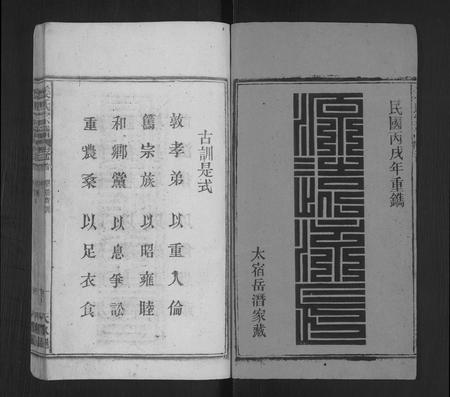 民國丙戌年重鐫
源遠流長
太宿岳潛家藏
古訓是式
敦孝弟以重人倫
篤宗族以昭雍睦
和鄉黨以息爭訟
重農桑以足衣食